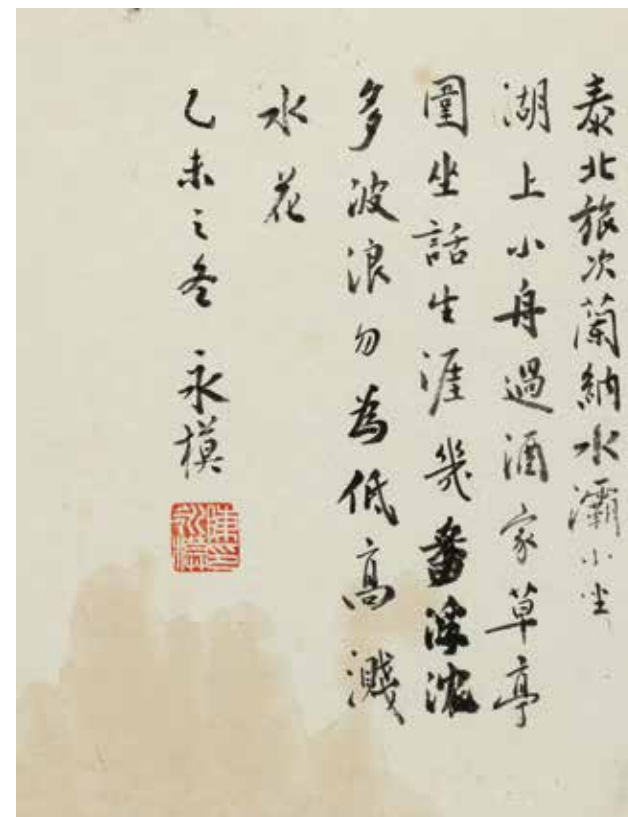 泰北旅次蘭納水灞小坐
湖上小舟過酒家草亭
圍坐話生涯幾番浮沈
多波浪勿為低高濺
水花
乙未之冬 永模
陳印永模